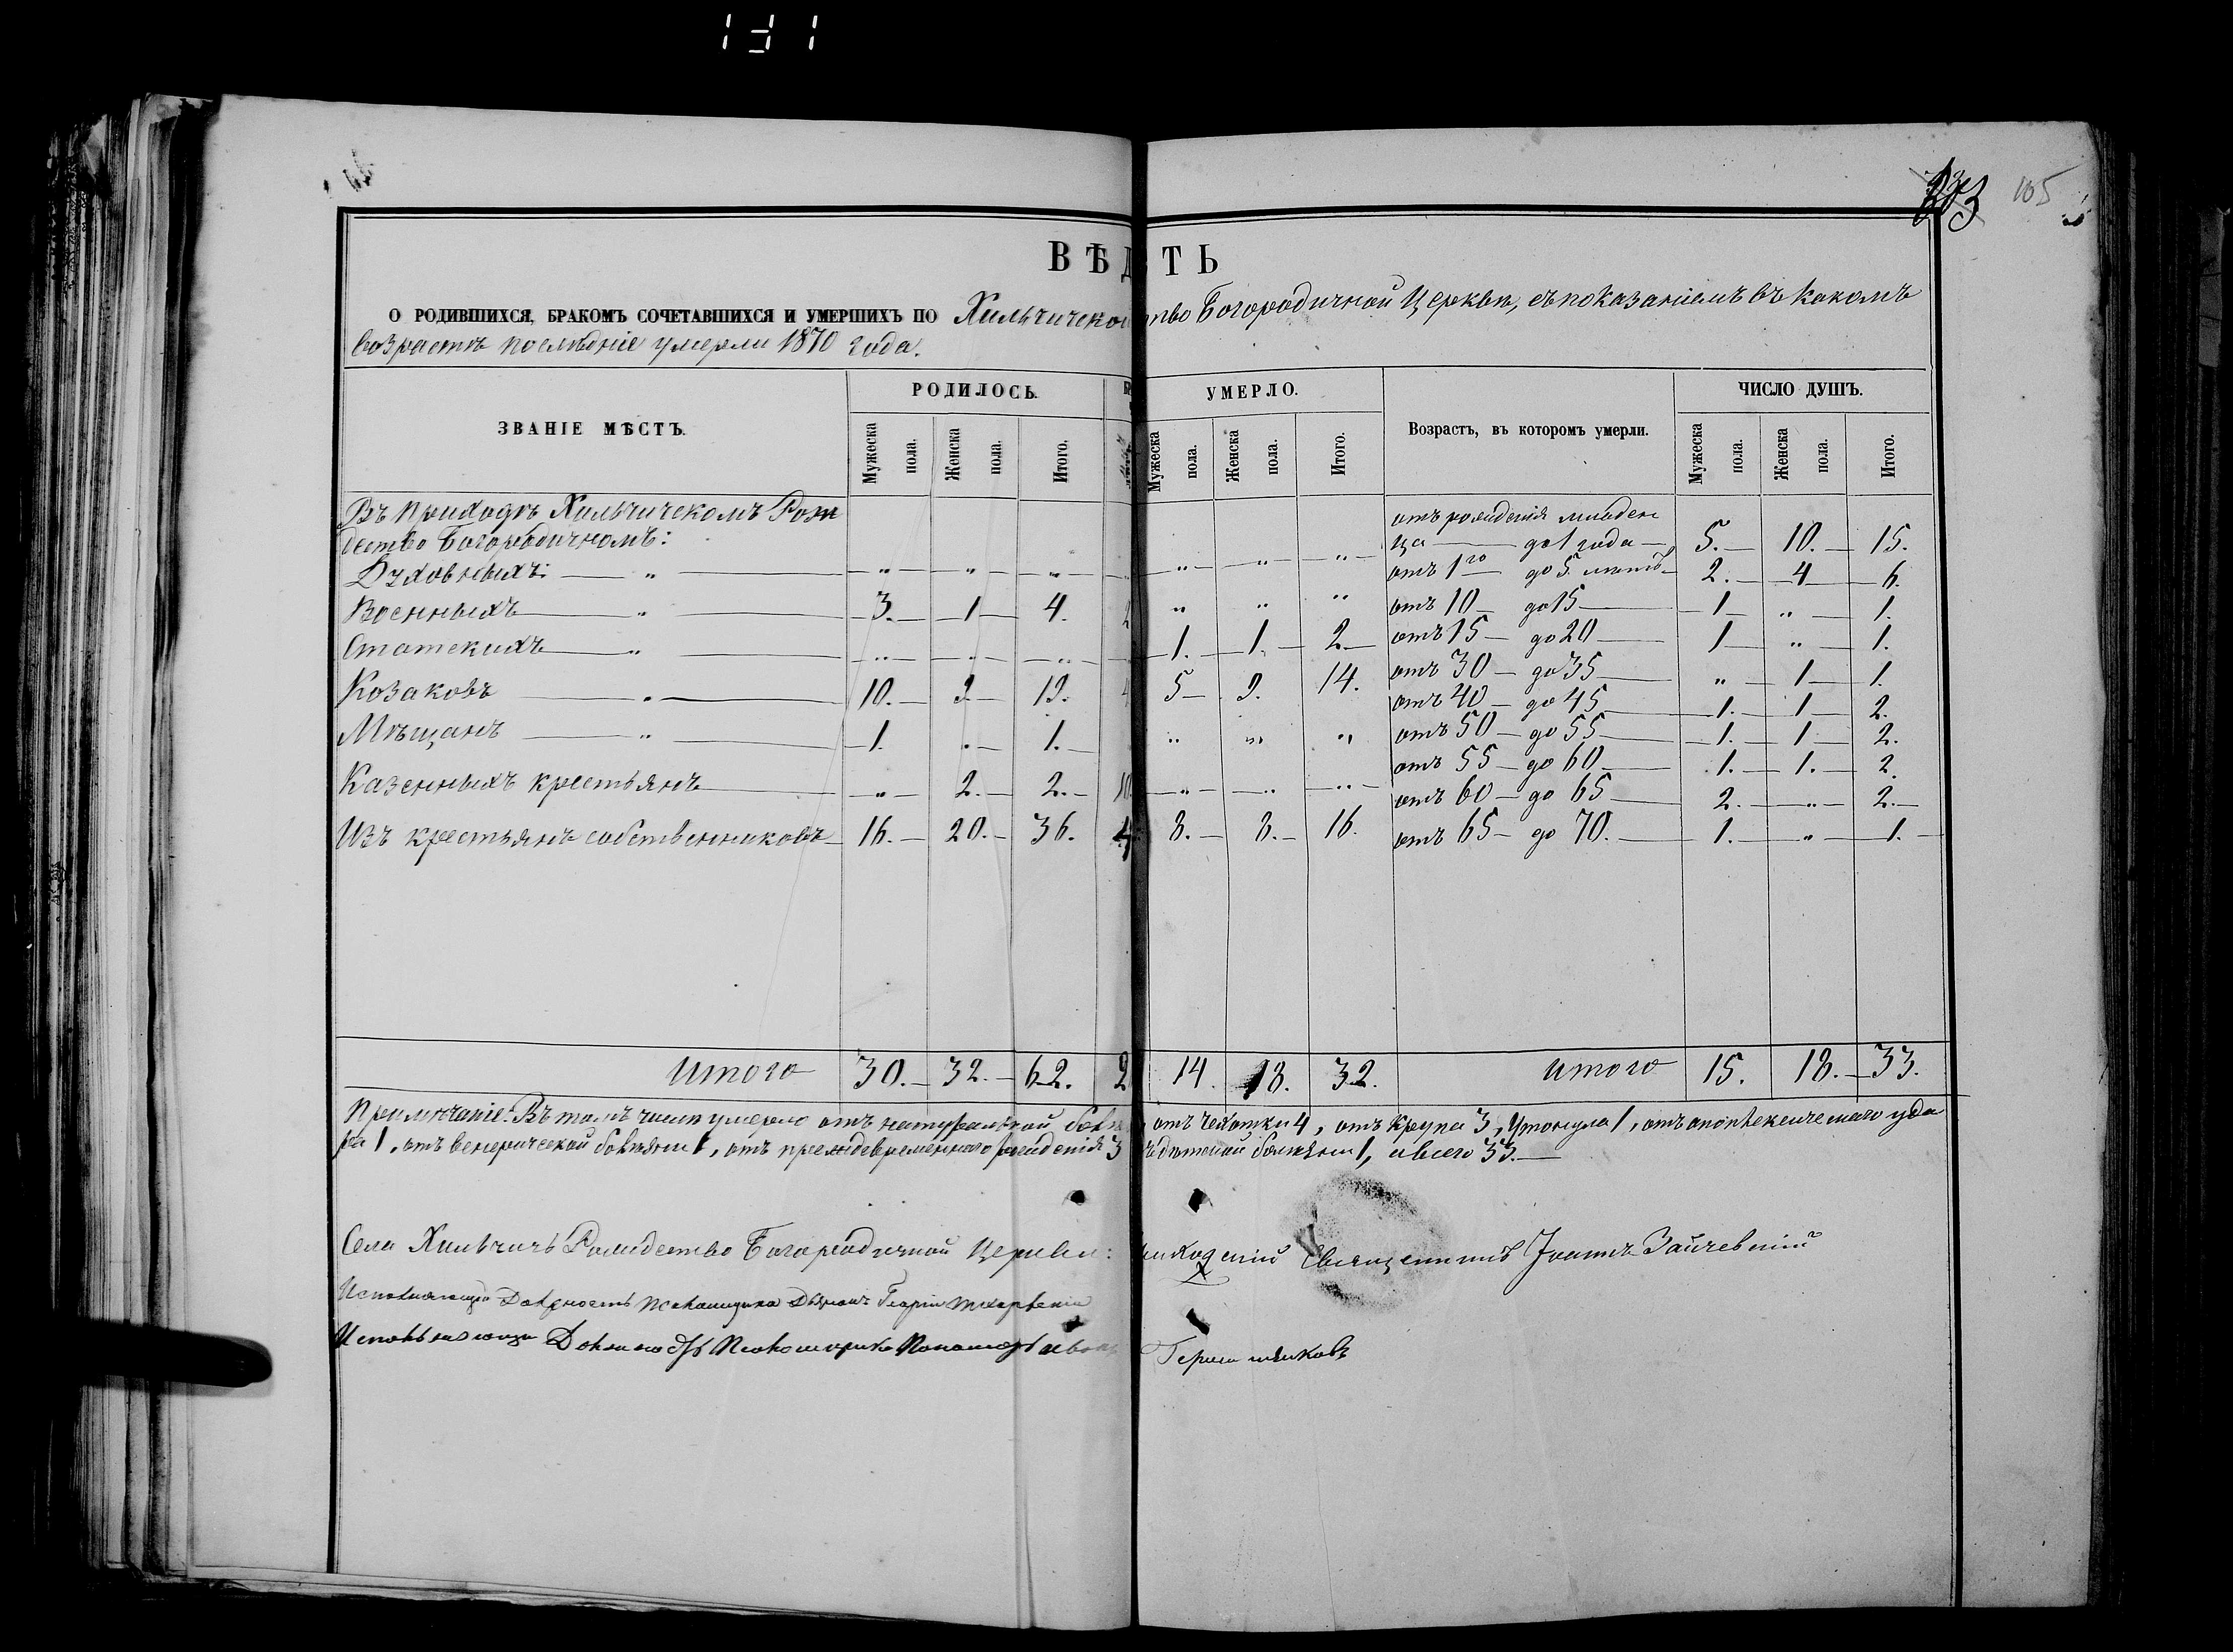 131
105
ВѢД ТЬ
О РОДИВШИХСЯ, БРАКОМЪ СОЧЕТАВШИХСЯ И УМЕРШИХЪ ПО Хильчичской тво Богородичной Церкви, съ показаніемъ въ какомъ
возрастѣ послѣдніе умерли 1870 года.
ЗВАНІЕ МѢСТЪ. РОДИЛОСЬ. УМЕРЛО. Возрастъ, въ которомъ умерли. ЧИСЛО ДУШЪ.
Мужеска пола. Женска пола. Итого. Мужеска пола. Женска пола. Итого. Мужеска пола. Женска пола. Итого.
Въ приходѣ Хильчичскомъ Рож
дество Богородичномъ: отъ рожденія младен
ца — до 1 года — 5. — 10. — 15.
Духовныхъ: — „ — „ — „ — „ — „ — „ — „ отъ 1го до 5 лѣтъ 2. — 4 — 6.
Военныхъ — „ — 3. — 1 — 4. 2 „ „ „ отъ 10 — до 15 — 1 — „ — 1.
Статскихъ — „ — „ — „ — „ — 1. — 1. — 2 — отъ 15 — до 20 — 1 — „ — 1.
Козаковъ — „ — 10. — 9 — 19. 4 5 — 9. 14. отъ 30 — до 35 — „ — 1 — 1.
отъ 40 — до 45 — 1. — 1 — 2.
Мѣщанъ — „ — 1. „ — 1. — „ „ „ отъ 50 — до 55 — 1. — 1 — 2.
отъ 55 — до 60 — 1. — 1. — 2.
Казенныхъ крестьянъ — „ — 2. — 2. — 10. — „ — „ — „ — отъ 60 — до 65 — 2. — „ — 2. —
Изъ крестьянъ собственниковъ — 16. — 20. — 36. 4 8. — 8. — 16. отъ 65 — до 70. — 1. — „ — 1. —
Итого 30. — 32. — 62. 2 14. 18. 32. Итого 15. 18. — 33.
Примѣчаніе: Въ томъ числѣ умерло отъ натуральной отъ чахотки 4, отъ крупа 3, утонула 1, отъ апоплексическаго уда
ра 1, отъ венерической болѣзни 1, отъ преждевременнаго рожденія 3 дѣтской болѣзни 1, а всего 33. —
Села Хильчичъ Рождество Богородичной Церкви: Священникъ Іоаннъ Зайчевскій
Должность Псаломщика Дьяконъ Георгій
Псаломщика Пономарь